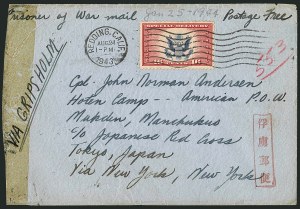 Prisoner of War mail Postage Free
Jan 25-1944
REDDING, CALIF.
AUG 24
1-PM
1943
VIA GRIPSHOLM
Cpl. John Norman Andersen
Hoten Camp -- American P.O.W.
Mukden, Manchukuo
c/o Japanese Red Cross
Tokyo, Japan
Via New York, New York
俘虜郵便